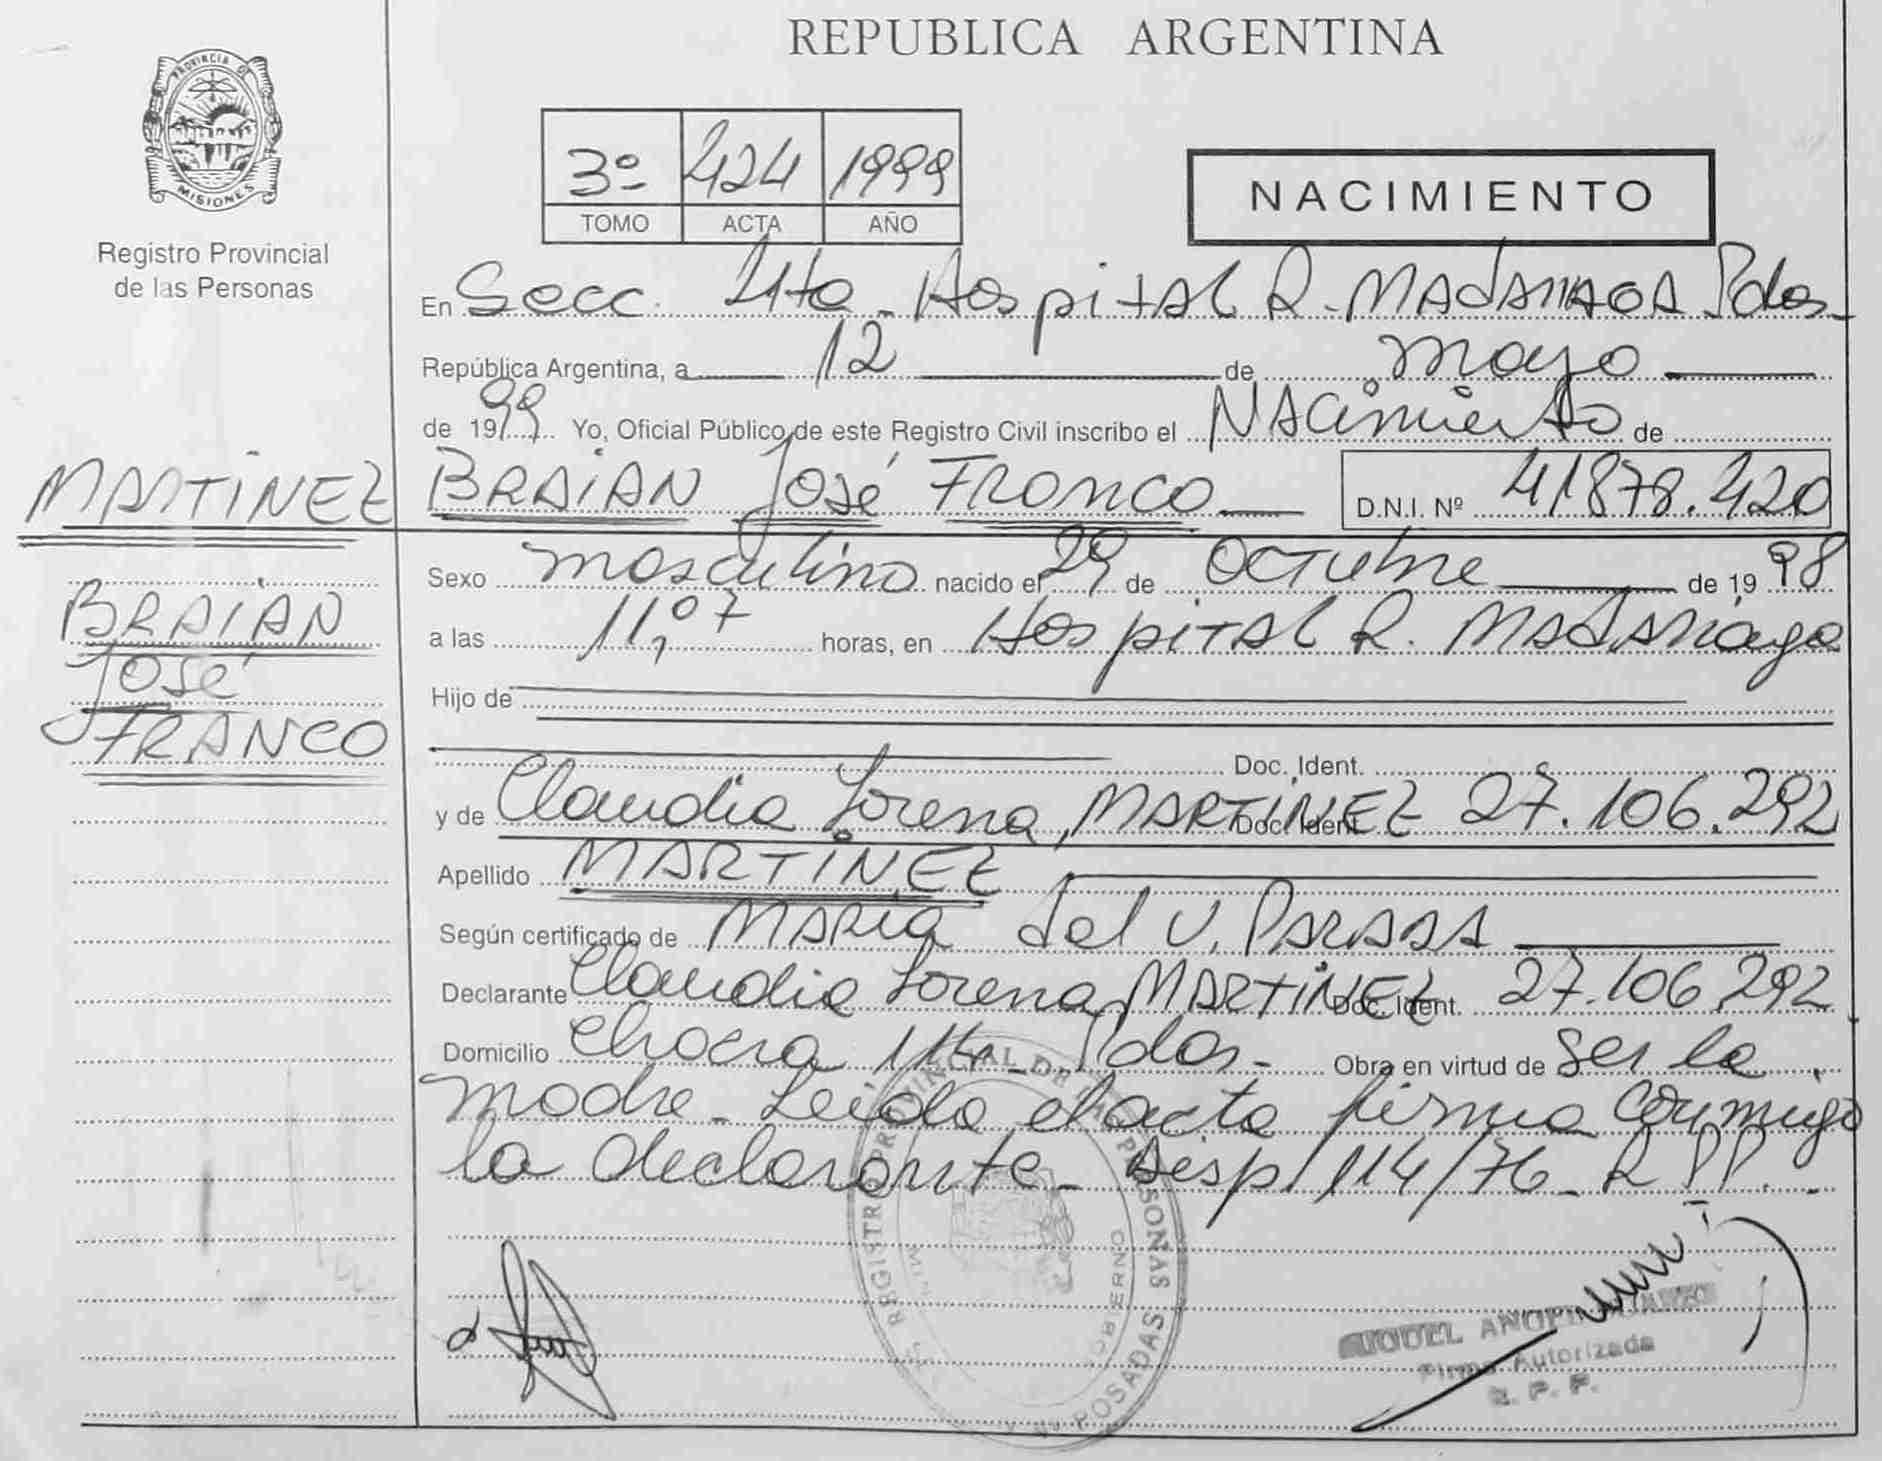 REPUBLICA ARGENTINA
PROVINCIA DE
MISIONES
Registro Provincial
de las Personas
3º 424 1999
TOMO ACTA AÑO
NACIMIENTO
En Secc. 4ta - Hospital R. MADARIAGA Pdas -
República Argentina, a 12 de mayo
de 1999 Yo, Oficial Público de este Registro Civil inscribo el NACimiento de
MARTINEZ
BRAIAN José FRANCO D.N.I. Nº 41878.420
BRAIAN
José
FRANCO
Sexo masculino nacido el 29 de OCTubre de 1998
a las 11,07 horas, en HospiTAL R. MADARiaga
Hijo de
Doc. Ident.
y de Claudia Lorena MARTINEZ Doc. Ident. 27.106.292
Apellido MARTINEZ
Según certificado de MARia del V. PARRA
Declarante Claudia Lorena MARTINEZ Doc. Ident. 27.106.292
Domicilio Chacra Pdas - Obra en virtud de ser la
madre - Leida el acta firma conmigo
la declarante - Disp 114/76 - R PP.
REGISTRO PROVINCIAL DE LAS PERSONAS
POSADAS
GOBIERNO
Firma Autorizada
R. P. P.